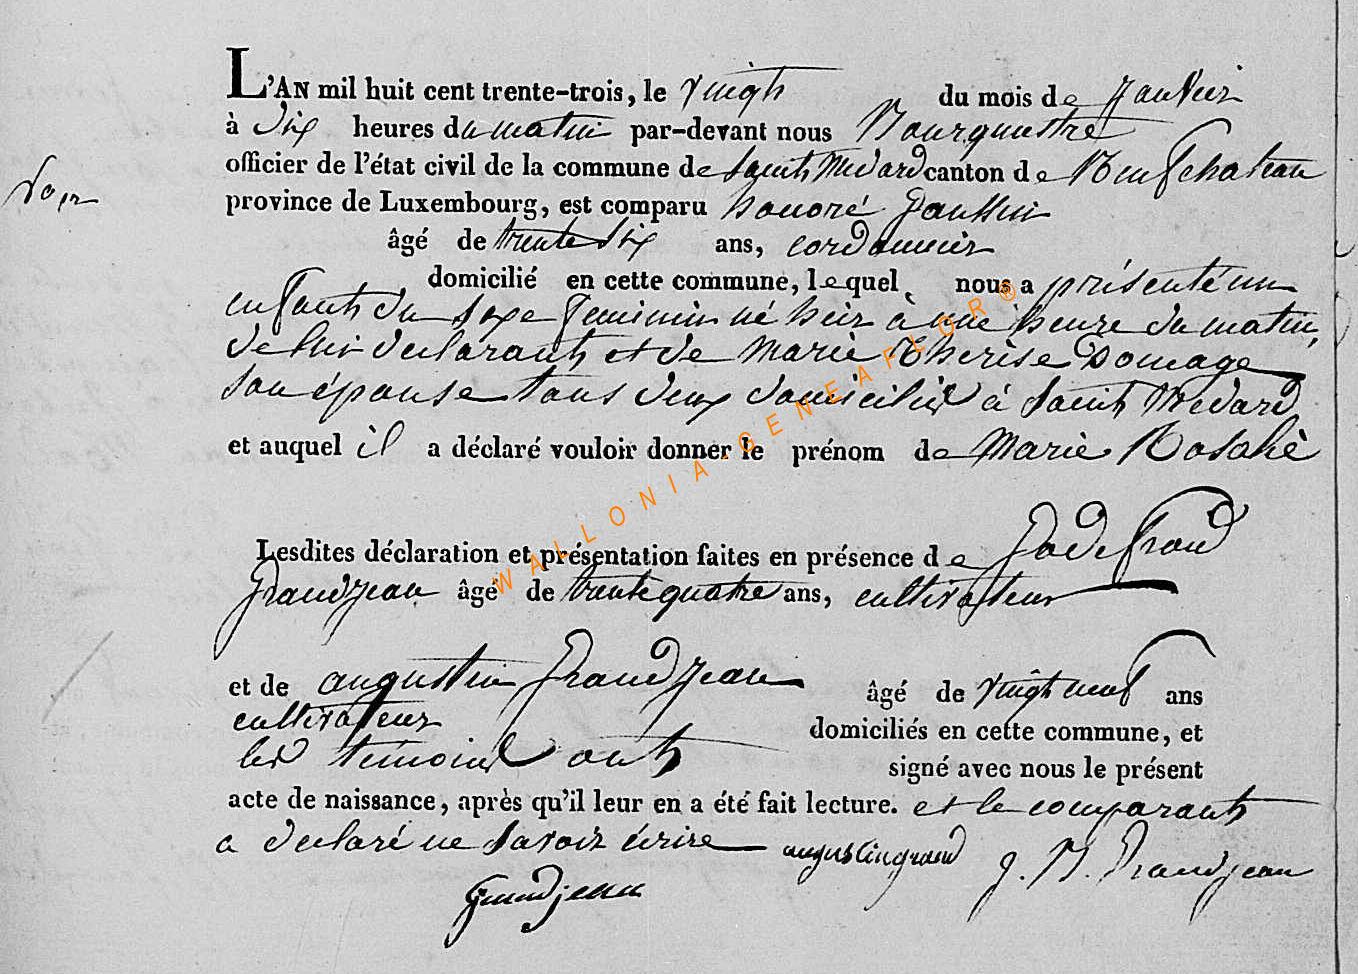 L'AN mil huit cent trente-trois, le vingt du mois de janvier
à dix heures du matin par-devant nous Bourgmestre
officier de l'état civil de la commune de saint Medard canton de Neufchateau
province de Luxembourg, est comparu honoré
âgé de trente six ans, cordonnier
domicilié en cette commune, lequel nous a présenté un
enfant du sexe feminin né hier à une heure du matin,
de lui declarant et de Marie Therèse Domage
son épouse tous deux domiciliés à Saint Medard
et auquel il a déclaré vouloir donner le prénom de Marie Rosalie
Lesdites déclaration et présentation faites en présence de
Grandjean âgé de trente quatre ans, cultivateur
et de augustin Grandjean âgé de vingt neuf ans
cultivateur domiciliés en cette commune, et
les témoins ont signé avec nous le présent
acte de naissance, après qu'il leur en a été fait lecture. et le comparant
a declaré ne savoir écrire augustin grand J. B. Grandjean
Grandjean
WALLONIA-GENEAFLOR®